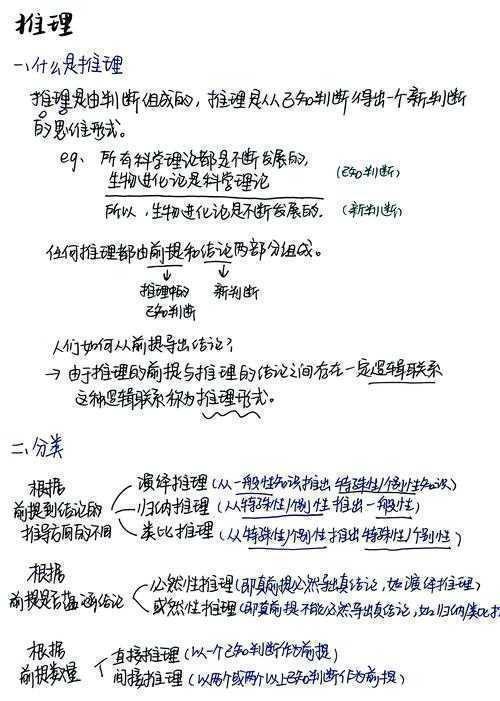 推理
一、什么是推理
推理是由判断组成的，推理是从已知判断得出一个新判断
的思维形式。
eg、所有科学理论都是不断发展的，
生物进化论是科学理论 (已知判断)
所以，生物进化论是不断发展的。 (新判断)
任何推理都由前提和结论两部分组成。
↓ ↓
推理中的 新判断
已知判断
人们如何从前提导出结论？
→ 由于推理的前提与推理的结论之间存在一定逻辑联系
这种逻辑联系称为推理形式。
二、分类
根据
前提到结论的
推导方向的不同
演绎推理 (从一般性知识推出特殊性/个别性知识)
归纳推理 (从特殊性/个别性推出一般性)
类比推理 (从特殊性/个别性推出特殊性/个别性)
根据
前提是否蕴涵结论
必然性推理 (即真前提必然导出真结论，如演绎推理)
或然性推理 (即真前提不能必然导出真结论，如归纳/类比推
根据
前提数量
直接推理 (以一个已知判断作为前提)
间接推理 (以两个或两个以上已知判断作为前提)